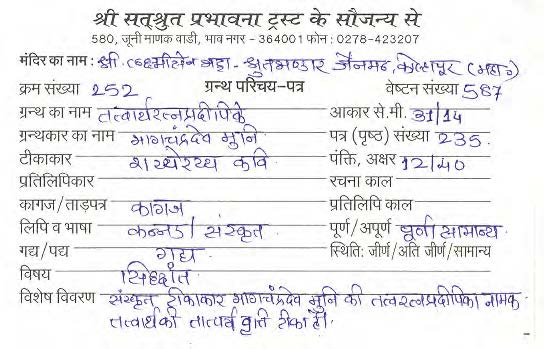 श्री सत्श्रुत प्रभावना ट्रस्ट के सौजन्य से
580, जूनी माणक वाडी, भाव नगर - 364001 फोन : 0278-423207
मंदिर का नाम : श्री. लक्ष्मीसेन भट्टा - श्रुतभण्डार जैनमठ, कोल्हापुर (महा०)
क्रम संख्या 252 ग्रन्थ परिचय-पत्र वेष्टन संख्या 567
ग्रन्थ का नाम तत्वार्थरत्नप्रदीपिके आकार से.मी. 31/14
ग्रन्थकार का नाम भागचंद्रदेव मुनि पत्र (पृष्ठ) संख्या 235.
टीकाकार कवि पंक्ति, अक्षर 12/40
प्रतिलिपिकार रचना काल
कागज/ताड़पत्र कागज प्रतिलिपि काल
लिपि व भाषा कन्नड/ संस्कृत पूर्ण/अपूर्ण पूर्ण सामान्य
गद्य/पद्य गद्य स्थिति: जीर्ण/अति जीर्ण/सामान्य
विषय सिद्धांत
विशेष विवरण संस्कृत टीकाकार भागचंद्रदेव मुनि की तत्वरत्नप्रदीपिका नामक
तत्वार्थकी तात्पर्य वृत्ति टीका है।